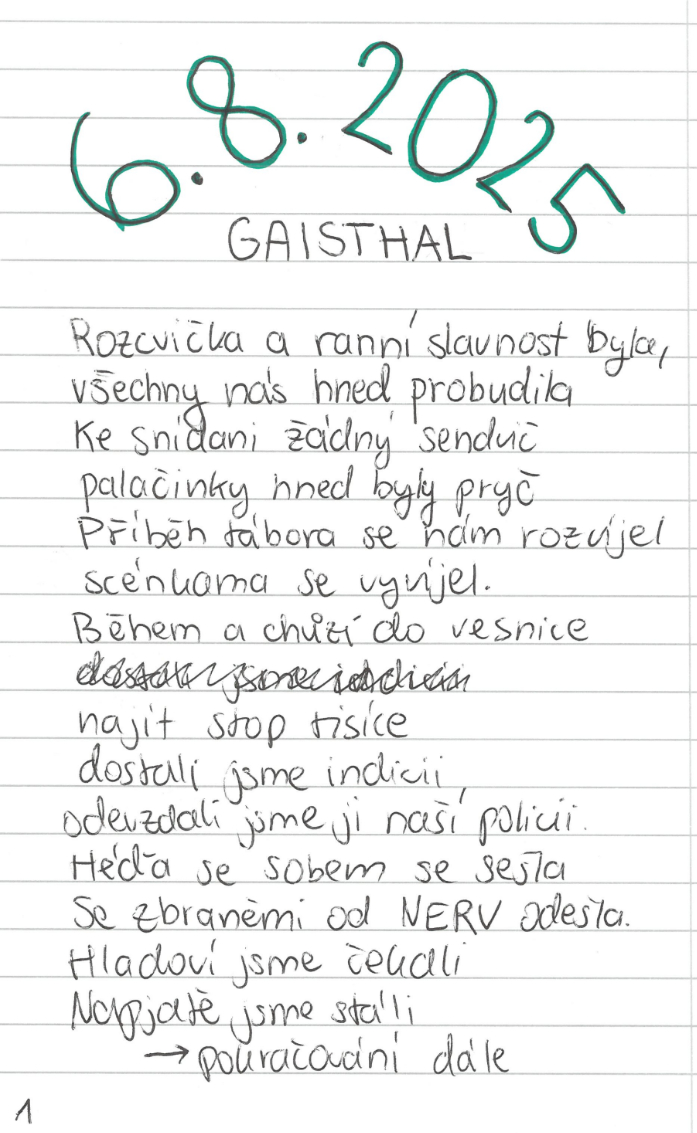 6.8.2025
GAISTHAL
Rozcvička a ranní slavnost byla,
všechny nás hned probudila
Ke snídani žádný sendvič
palačinky hned byly pryč
Příběh tábora se nám rozvíjel
scénkama se vyvíjel.
Během a chůzí do vesnice
najít stop tisíce
dostali jsme indicii,
odevzdali jsme ji naší policii.
Héďa se sobem se sešla
Se zbraněmi od NERV odešla.
Hladoví jsme čekali
Napjatě jsme stáli
→ pokračování dále
1